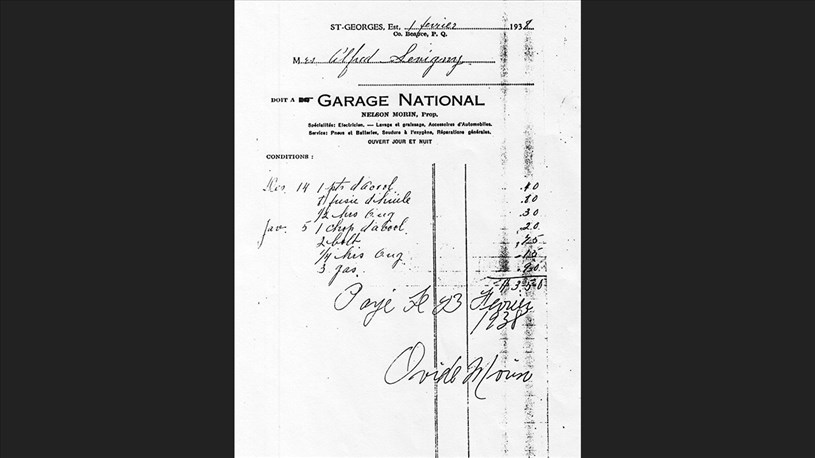 ST-GEORGES, Est, 1 fevrier 1938
Co. Beauce, P. Q.
M es Alfred Levigny
DOIT A GARAGE NATIONAL
NELSON MORIN, Prop.
Spécialités: Electricien, — Lavage et graissage, Accessoires d'Automobiles.
Service: Pneus et Batteries, Soudure à l'oxygène, Réparations générales.
OUVERT JOUR ET NUIT
CONDITIONS :
14 1 pts d'acool .40
d'huile .80
1/2 hrs oug .30
Jav. 5 1 chop d'acool .20
2 bolt .75
1/4 hrs oug .15
3 gas .90
3 50
Payé le 23 Fevrier
1938
Ovide Morin